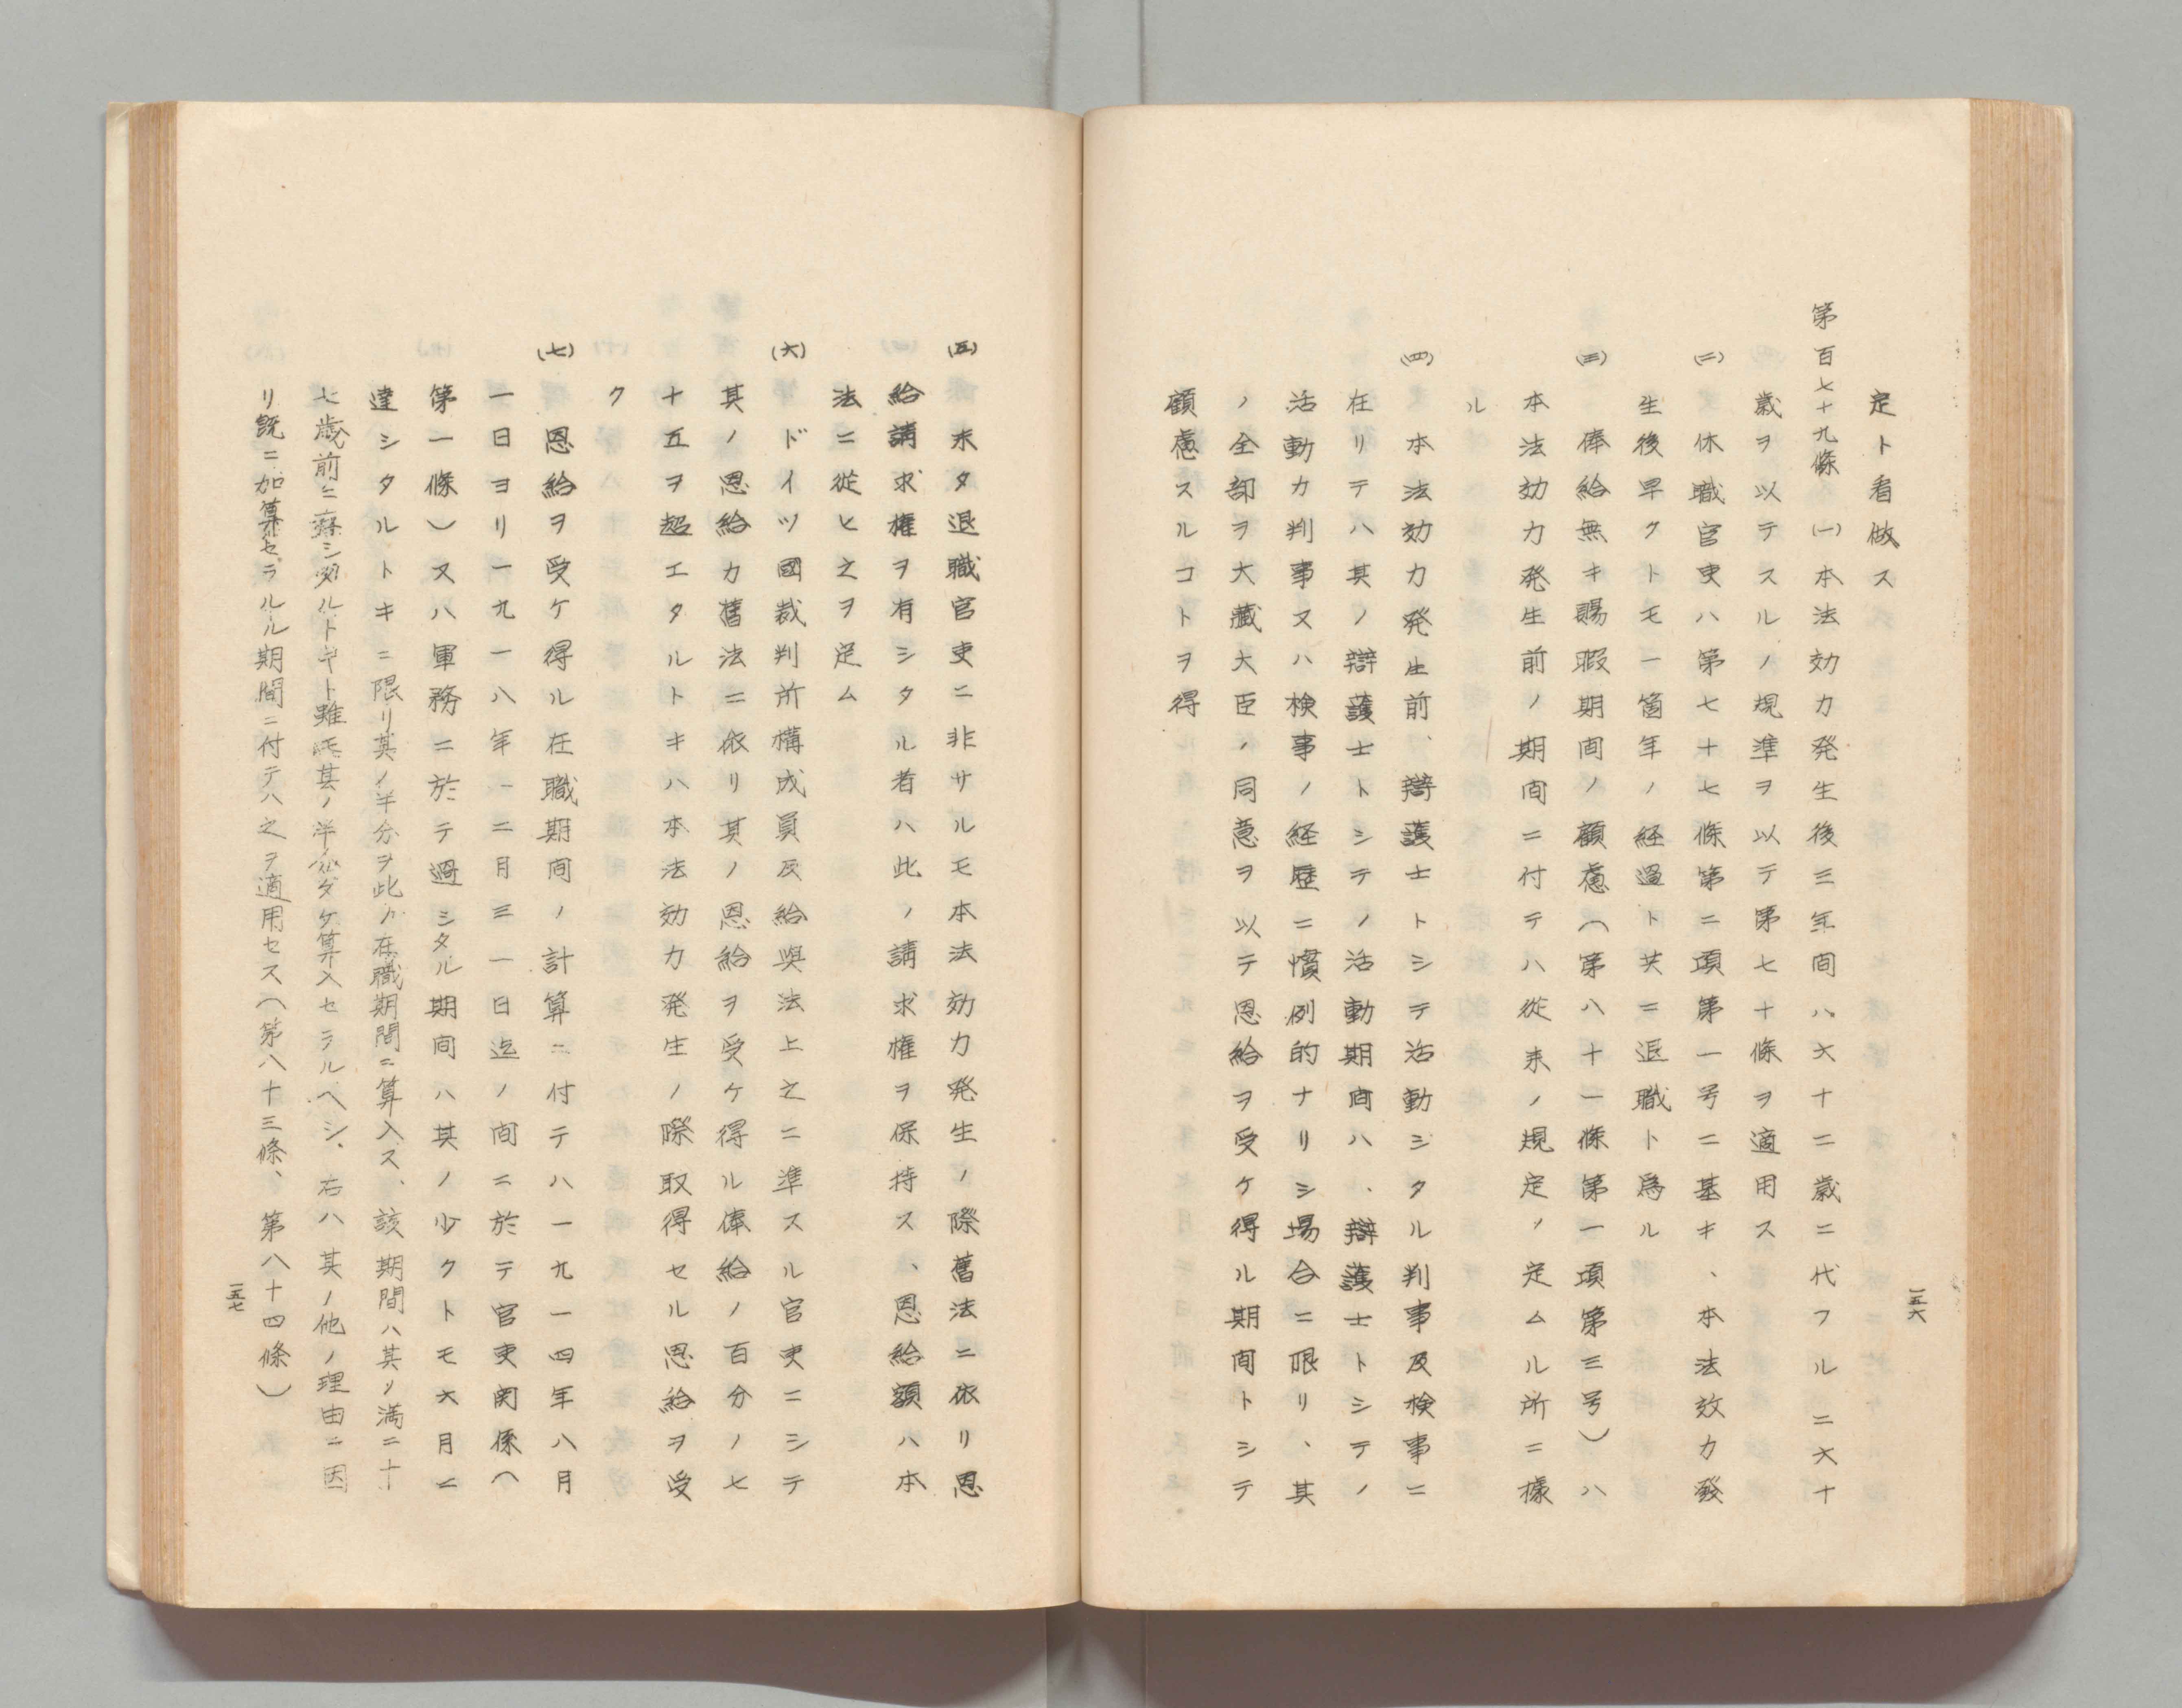 定ト看做ス
第百七十九條 (一) 本法効力発生後三年間ハ六十二歳ニ代フルニ六十
歳ヲ以テスルノ規準ヲ以テ第七十條ヲ適用ス
(二) 休職官吏ハ第七十七條第二項第一号ニ基キ、本法效力發
生後早クトモ一箇年ノ経過ト共ニ退職ト爲ル
(三) 俸給無キ賜暇期间ノ顧慮(第八十一條第一項第三号)ハ
本法効力発生前ノ期间ニ付テハ從来ノ規定ノ定ムル所ニ據
ル
(四) 本法効力発生前、辯護士トシテ活動シタル判事及検事ニ
在リテハ其ノ辯護士トシテノ活動期间ハ、辯護士トシテノ
活動カ判事又ハ検事ノ経歴ニ慣例的ナリシ場合ニ限リ、其
ノ全部ヲ大藏大臣ノ同意ヲ以テ恩給ヲ受ケ得ル期间トシテ
顧慮スルコトヲ得
一五六
(五) 未タ退職官吏ニ非サルモ本法効力発生ノ際舊法ニ依リ恩
給請求權ヲ有シタル者ハ此ノ請求權ヲ保持ス、恩給額ハ本
法ニ從ヒ之ヲ定ム
(六) ドイツ國裁判所構成員及給與法上之ニ準スル官吏ニシテ
其ノ恩給カ舊法ニ依リ其ノ恩給ヲ受ケ得ル俸給ノ百分ノ七
十五ヲ超エタルトキハ本法効力発生ノ際取得セル恩給ヲ受
ク
(七) 恩給ヲ受ケ得ル在職期间ノ計算ニ付テハ一九一四年八月
一日ヨリ一九一八年一二月三一日迄ノ间ニ於テ官吏関係(
第一條)又ハ軍務ニ於テ過シタル期间ハ其ノ少クトモ六月ニ
達シタルトキニ限リ其ノ半分ヲ此ノ在職期間ニ算入ス、該期間ハ其ノ満二十
七歳前ニ在シタルトキト雖モ其ノ半分ダケ算入セラルヘシ、右ハ其ノ他ノ理由ニ因
リ既ニ加算セラルル期間ニ付テハ之ヲ適用セス(第八十三條、第八十四條)
一五七